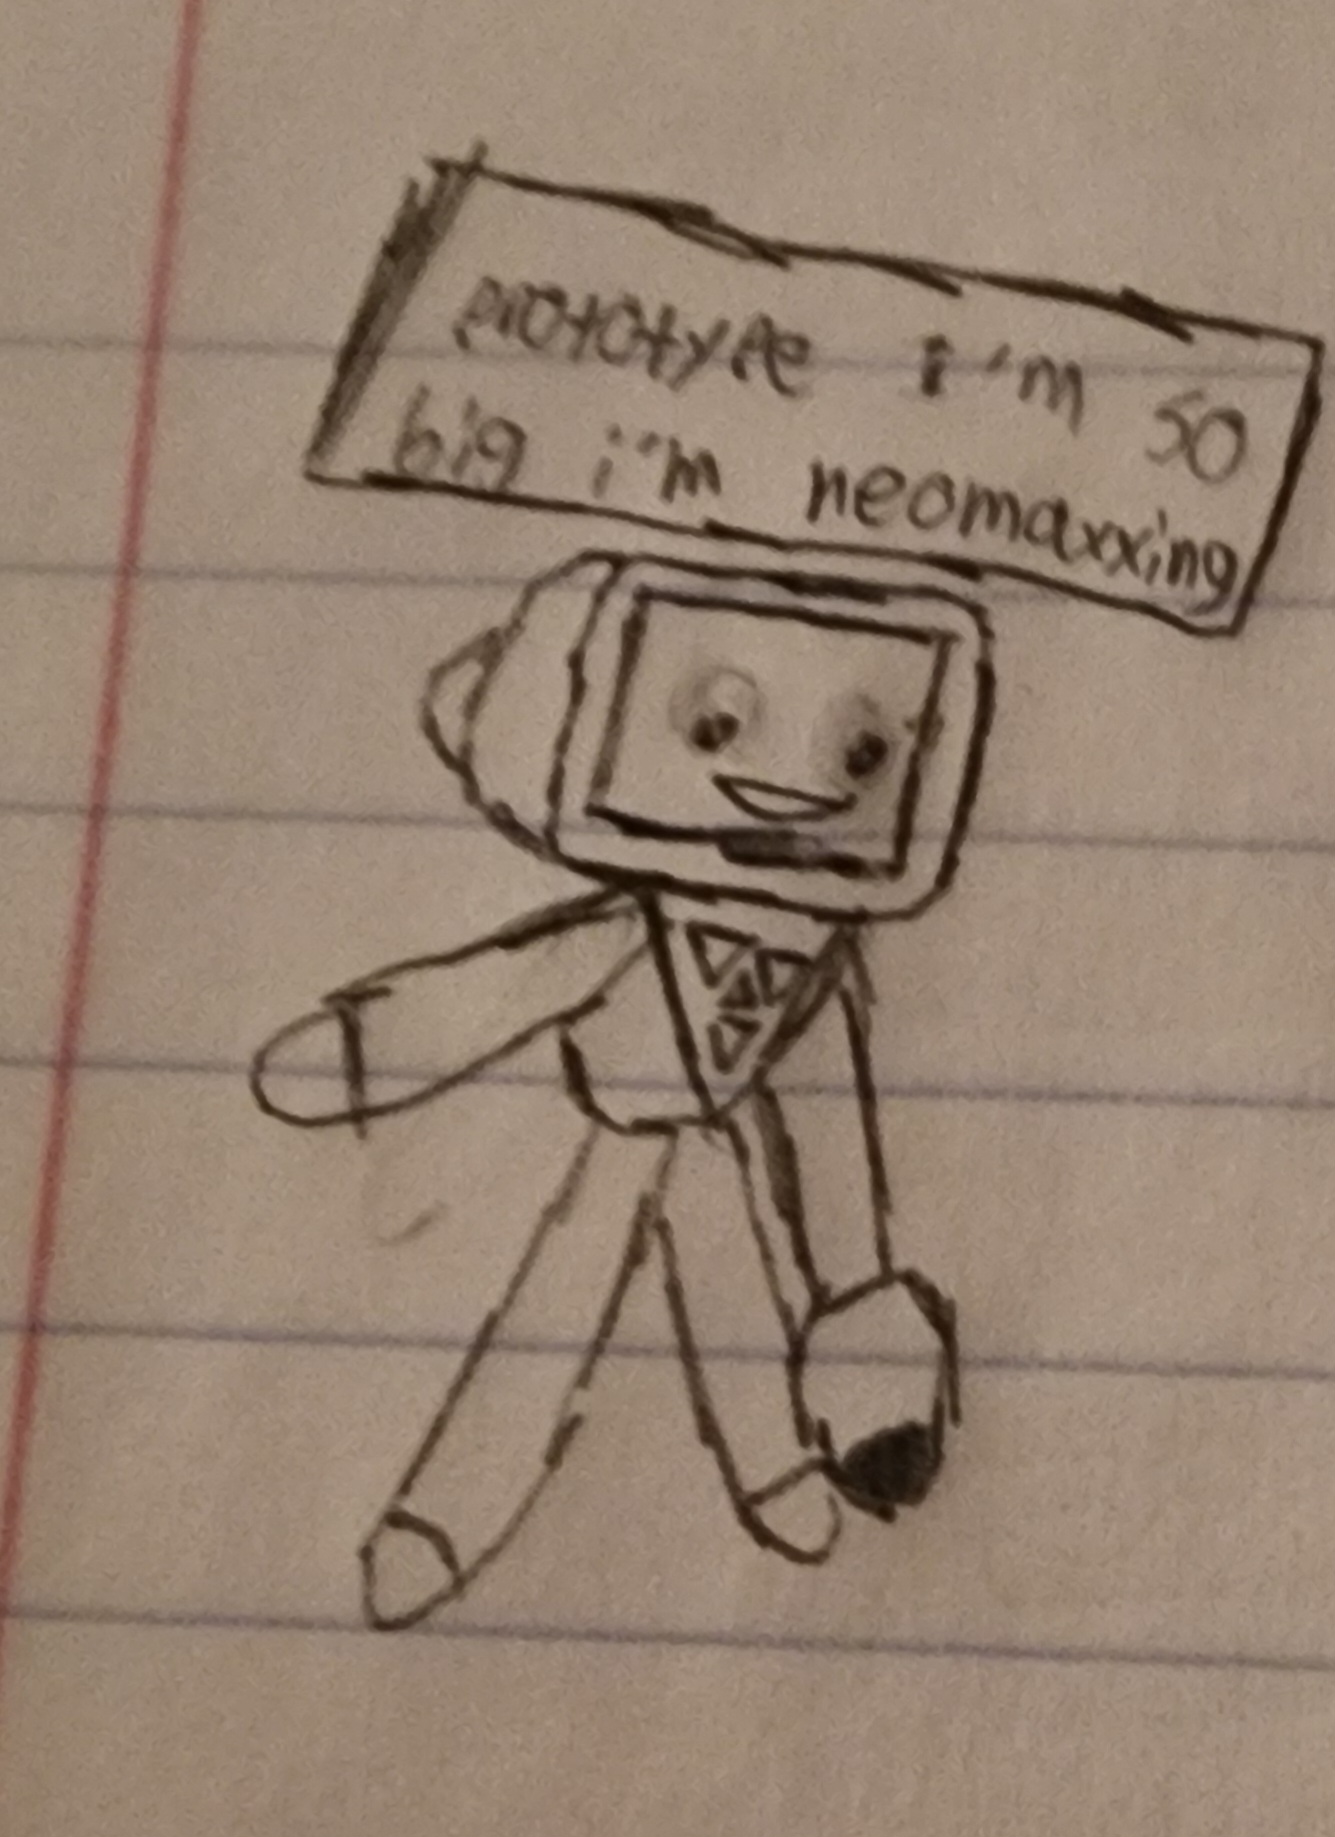 prototype i'm so
big i'm neomaxxing